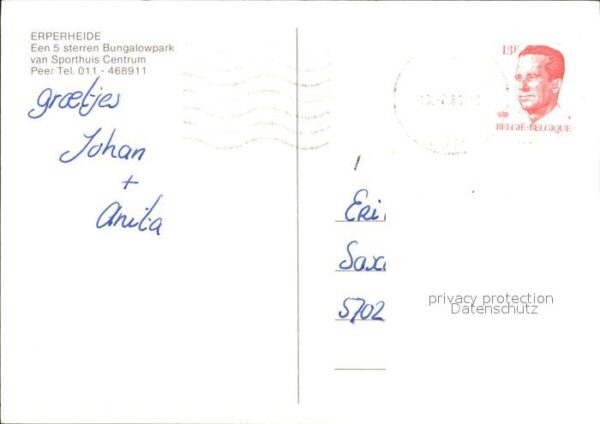 ERPERHEIDE
Een 5 sterren Bungalowpark
van Sporthuis Centrum
Peer Tel. 011 - 468911
groetjes
Johan
+
Anita
13F
BELGIË-BELGIQUE
Eri
Saxe
5702
privacy protection
Datenschutz